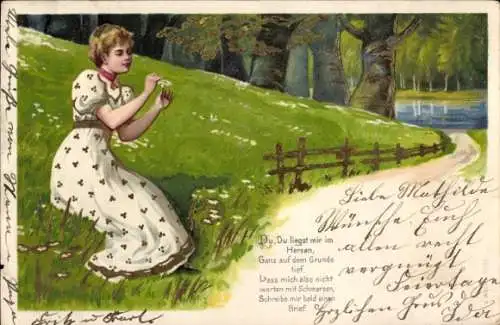 Du, Du liegst mir im
Herzen,
Ganz auf dem Grunde
tief.
Dass mich also nicht
warten mit Schmerzen,
Schreibe mir bald einen
Brief.
Liebe Mathilde
Wünsche Euch
allen recht
vergnügte
Feiertage
Herzlichen Gruß
Ida
Viele Grüße von
Fritz u Karl